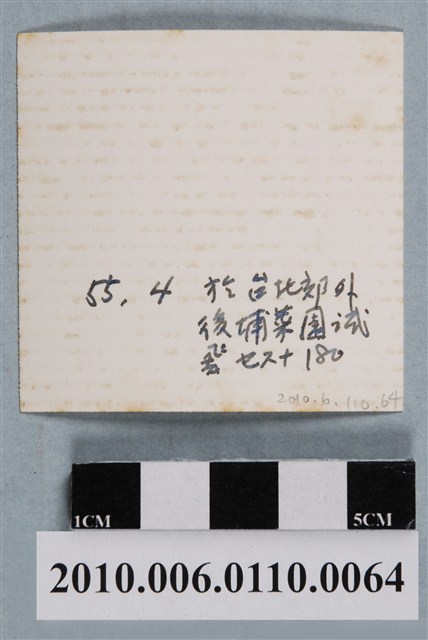 55.4 於台北郊外
後埔菜園試
飛セスナ180
2010.6.110.64
1CM 5CM
2010.006.0110.0064